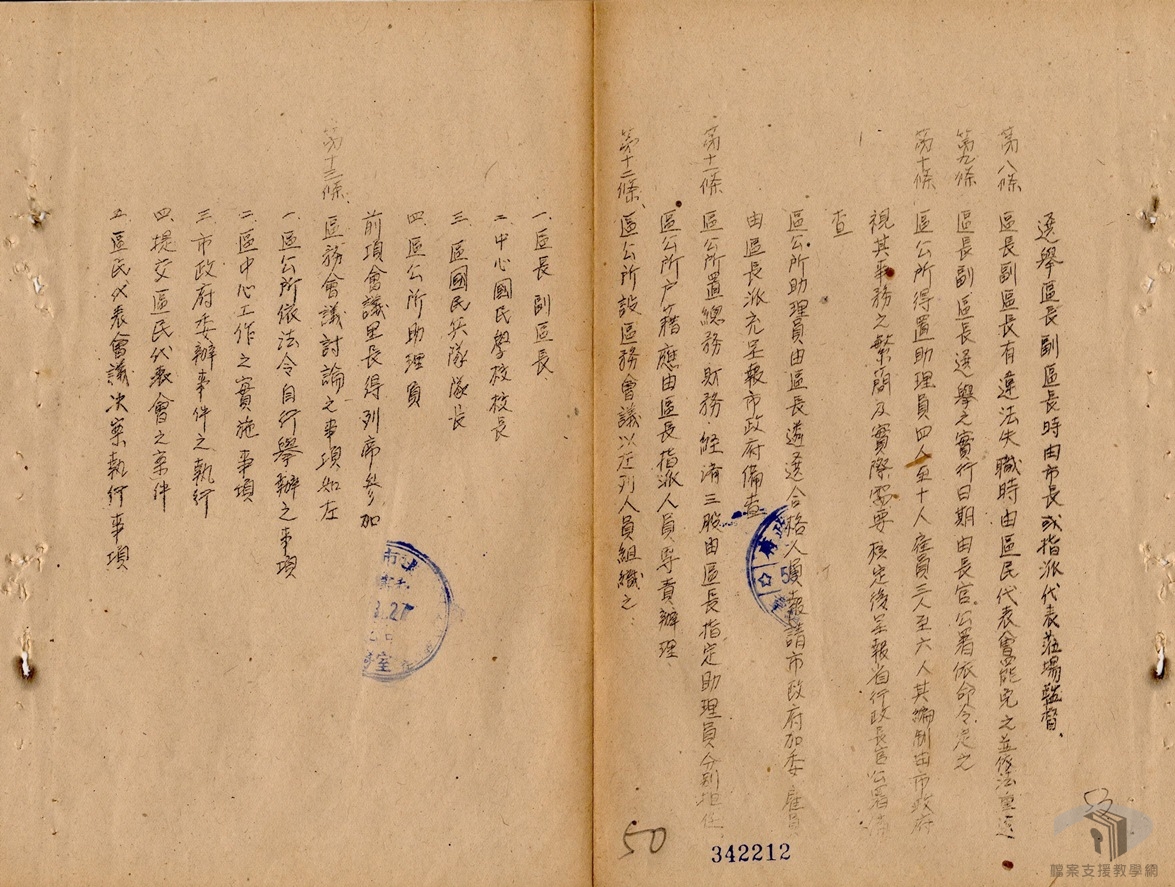 選舉區長副區長時由市長或指派代表蒞場監督、
第八條 區長副區長有違法失職時由區民代表會罷免之並依法重選
第九條 區長副區長選舉之實行日期由長官公署依命令定之
第十條 區公所得置助理員四人至十人雇員三人至六人其編制由市政府
視其事務之繁簡及實際需要核定後呈報省行政長官公署備
查
區公所助理員由區長遴選合格人員報請市政府加委雇員
由區長派充呈報市政府備查
第十一條 區公所置總務財務、經濟三股由區長指定助理員分別担任、
區公所户籍應由區長指派人員專責辦理、
第十二條、區公所設區務會議以左列人員組織之、
一、區長副區長、
二、中心國民學校校長
三、區國民兵隊隊長
四、區公所助理員
前項會議里長得列席參加
第十三條、區務會議討論之事項如左
一、區公所依法令自行舉辦之事項
二、區中心工作之實施事項
三、市政府委辦事件之執行
四、提交區民代表會之案件
五、區民代表會議決案執行事項
50
342212
檔案支援教學網